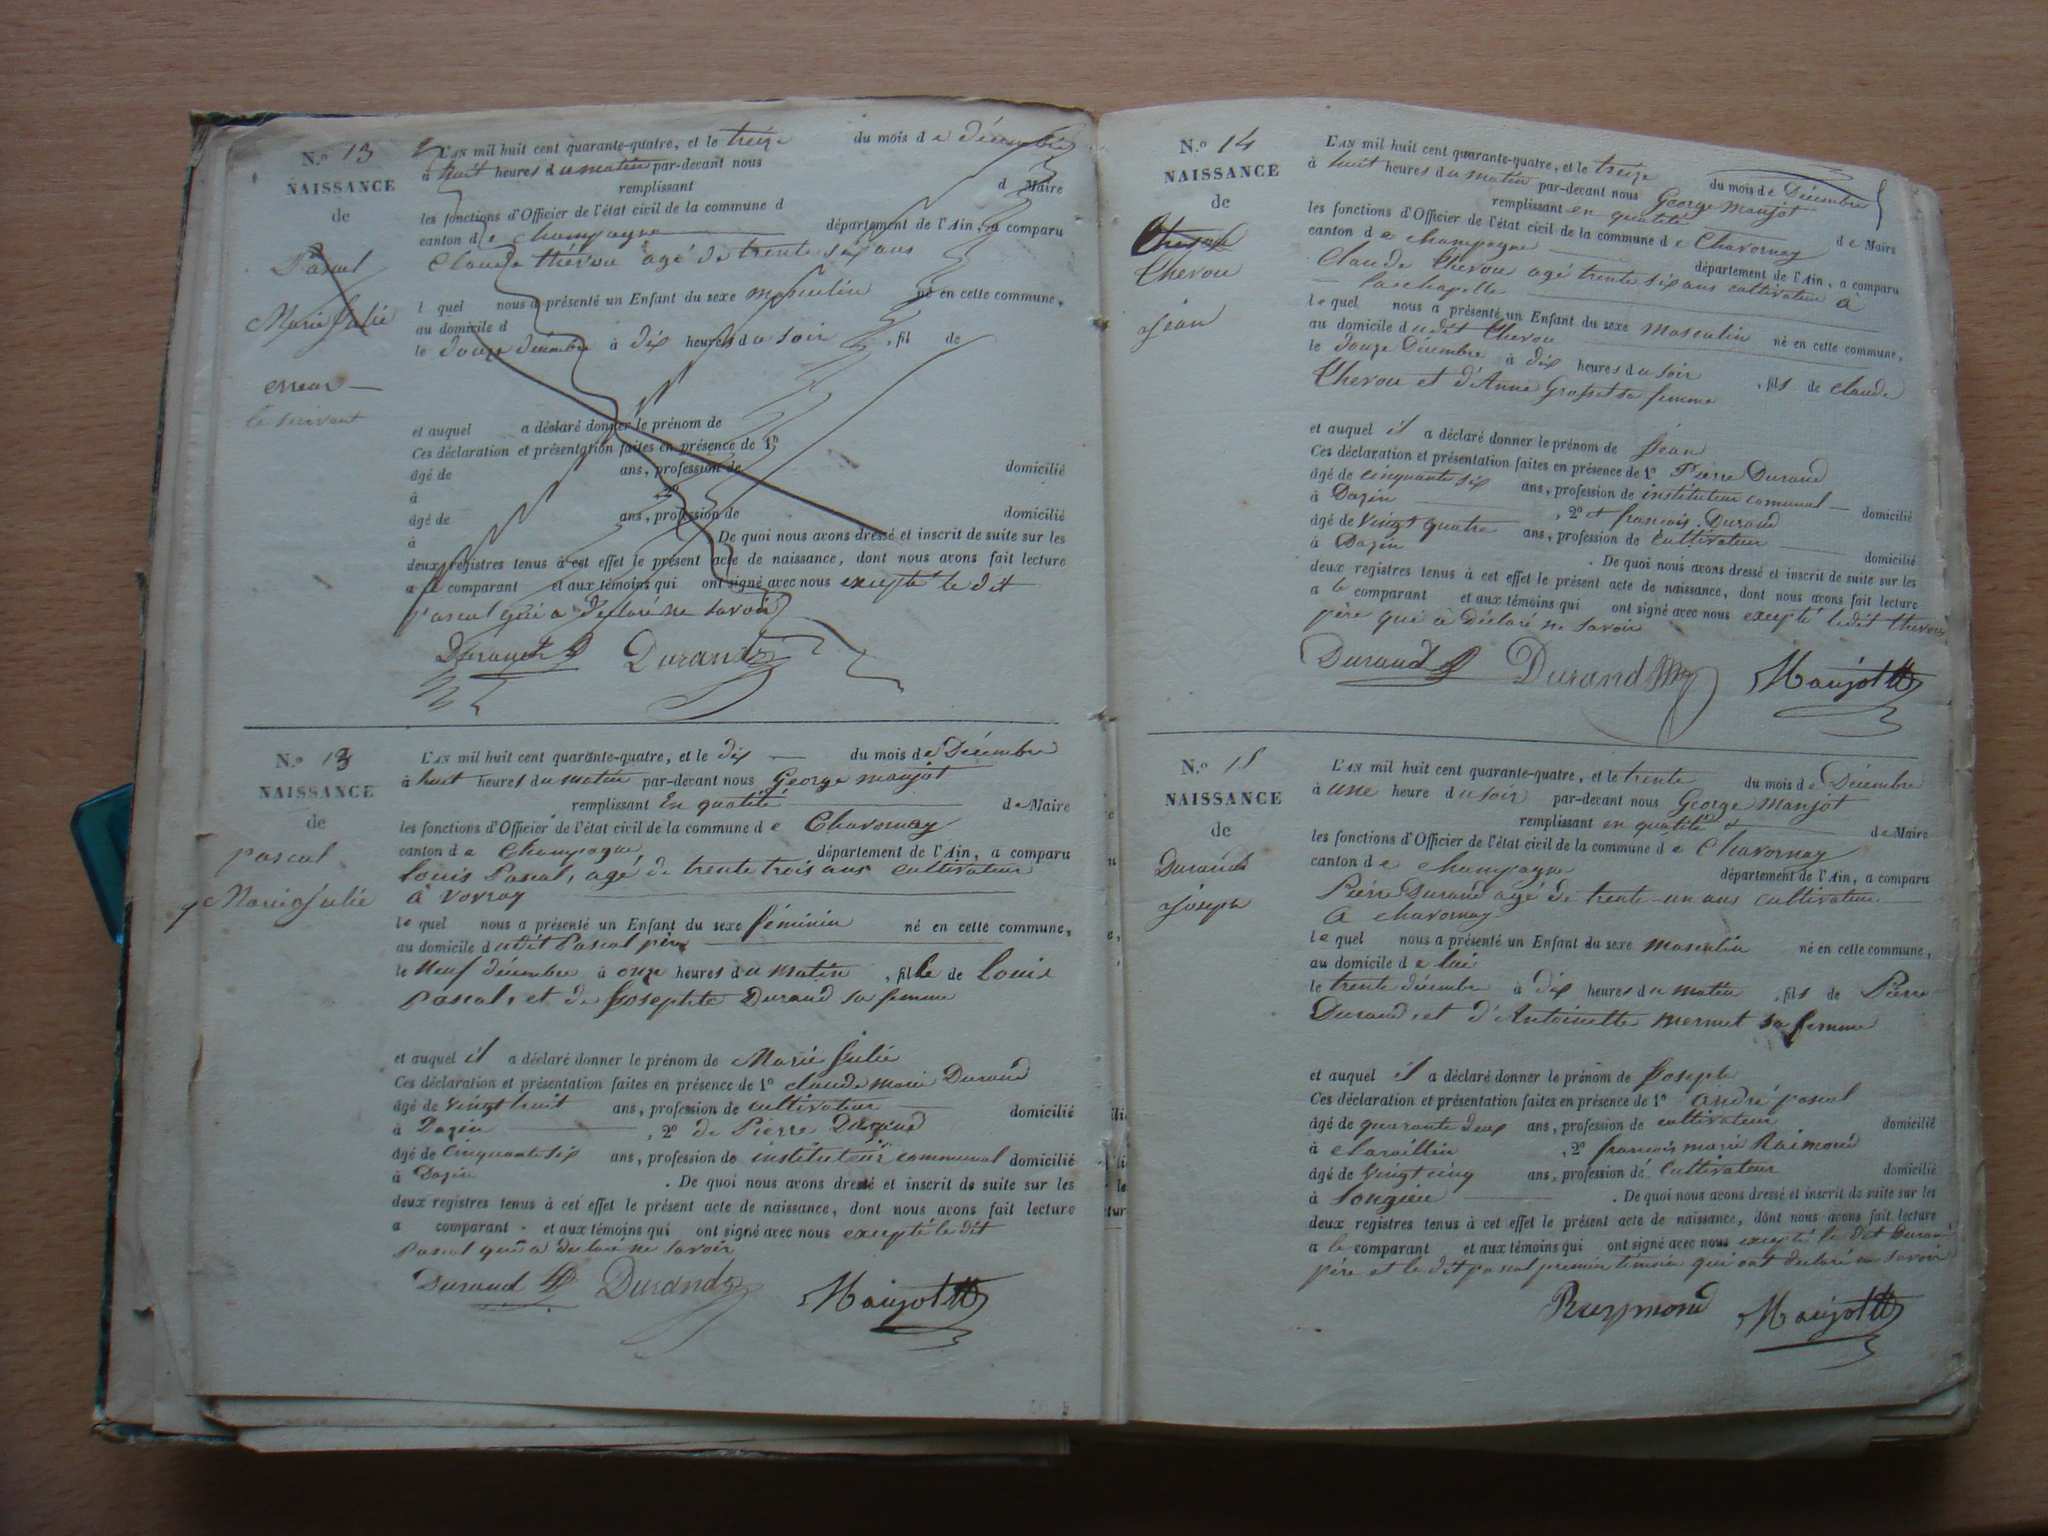 N.o 13
NAISSANCE
de
Pascal
Marie Julie
erreur
le suivant
L'AN mil huit cent quarante-quatre, et le treize du mois de décembre
à huit heures du matin par-devant nous
remplissant d Maire
les fonctions d'Officier de l'état civil de la commune d
canton de Champagne département de l'Ain, a comparu
Claude thévou agé de trente six ans
l quel nous a présenté un Enfant du sexe masculin né en cette commune,
au domicile d
le douze décembre à dix heures du soir , fil de
et auquel a déclaré donner le prénom de
Ces déclaration et présentation faites en présence de 1o
âgé de ans, profession de domicilié
à 2o
âgé de ans, profession de domicilié
à De quoi nous avons dressé et inscrit de suite sur les
deux registres tenus à cet effet le présent acte de naissance, dont nous avons fait lecture
a le comparant et aux témoins qui ont signé avec nous excepté le dit
Pascal qui a declaré ne savoir
Durand Durand
N.o 13
NAISSANCE
de
pascal
Marie Julie
L'AN mil huit cent quarante-quatre, et le dix du mois de Décembre
à huit heures du matin par-devant nous George maujot
remplissant En qualité de Maire
les fonctions d'Officier de l'état civil de la commune de Chavornay
canton de Champagne département de l'Ain, a comparu
Louis Pascal, agé de trente trois ans cultivateur
à vovray
le quel nous a présenté un Enfant du sexe féminin né en cette commune,
au domicile dudit Pascal père
le Neuf décembre à onze heures du matin , fille de Louis
Pascal, et de Josephte Durand sa femme
et auquel il a déclaré donner le prénom de Marie Julie
Ces déclaration et présentation faites en présence de 1o claude marie Durand
âgé de vingt huit ans, profession de cultivateur domicilié
à Dazin , 2o de Pierre Durand
âgé de cinquante six ans, profession de instituteur communal domicilié
à Dazin . De quoi nous avons dressé et inscrit de suite sur les
deux registres tenus à cet effet le présent acte de naissance, dont nous avons fait lecture
a comparant et aux témoins qui ont signé avec nous excepté le dit
Pascal qui a declaré ne savoir
Durand Durand Maujot
N.o 14
NAISSANCE
de
Thevou
Jean
L'AN mil huit cent quarante-quatre, et le treize du mois de Décembre
à huit heures du matin par-devant nous George Maujot
remplissant en qualité de Maire
les fonctions d'Officier de l'état civil de la commune de Chavornay
canton de champagne département de l'Ain, a comparu
Claude Thevou agé trente six ans cultivateur à
Lachapelle
le quel nous a présenté un Enfant du sexe masculin né en cette commune,
au domicile dudit Thevou
le douze Décembre à dix heures du soir , fils de claude
Thevou et d'Anne Grosset sa femme
et auquel il a déclaré donner le prénom de Jean
Ces déclaration et présentation faites en présence de 1o Pierre Durand
âgé de cinquante six ans, profession de instituteur comunal domicilié
à Dazin , 2o et françois Durand
âgé de vingt quatre ans, profession de cultivateur domicilié
à Dazin . De quoi nous avons dressé et inscrit de suite sur les
deux registres tenus à cet effet le présent acte de naissance, dont nous avons fait lecture
a le comparant et aux témoins qui ont signé avec nous excepté ledit thevou
père qui a déclaré ne savoir
Durand Durand Maujot
N.o 15
NAISSANCE
de
Durand
Joseph
L'AN mil huit cent quarante-quatre, et le trente du mois de Décembre
à une heure du soir par-devant nous George Maujot
remplissant en qualité de Maire
les fonctions d'Officier de l'état civil de la commune de Chavornay
canton de champagne département de l'Ain, a comparu
Pierre Durand agé de trente-un ans cultivateur
à chavornay
le quel nous a présenté un Enfant du sexe masculin né en cette commune,
au domicile de lui
le trente décembre à dix heures du matin , fils de Pierre
Durand, et d'Antoinette mermet sa femme
et auquel il a déclaré donner le prénom de Joseph
Ces déclaration et présentation faites en présence de 1o andré pascal
âgé de quarante deux ans, profession de cultivateur domicilié
à charaillin , 2o françois marie Raimond
âgé de vingt cinq ans, profession de cultivateur domicilié
à Songieu . De quoi nous avons dressé et inscrit de suite sur les
deux registres tenus à cet effet le présent acte de naissance, dont nous avons fait lecture
a le comparant et aux témoins qui ont signé avec nous excepté le dit Durand
père et le dit pascal premier témoin qui ont declaré ne savoir
Raymond Maujot